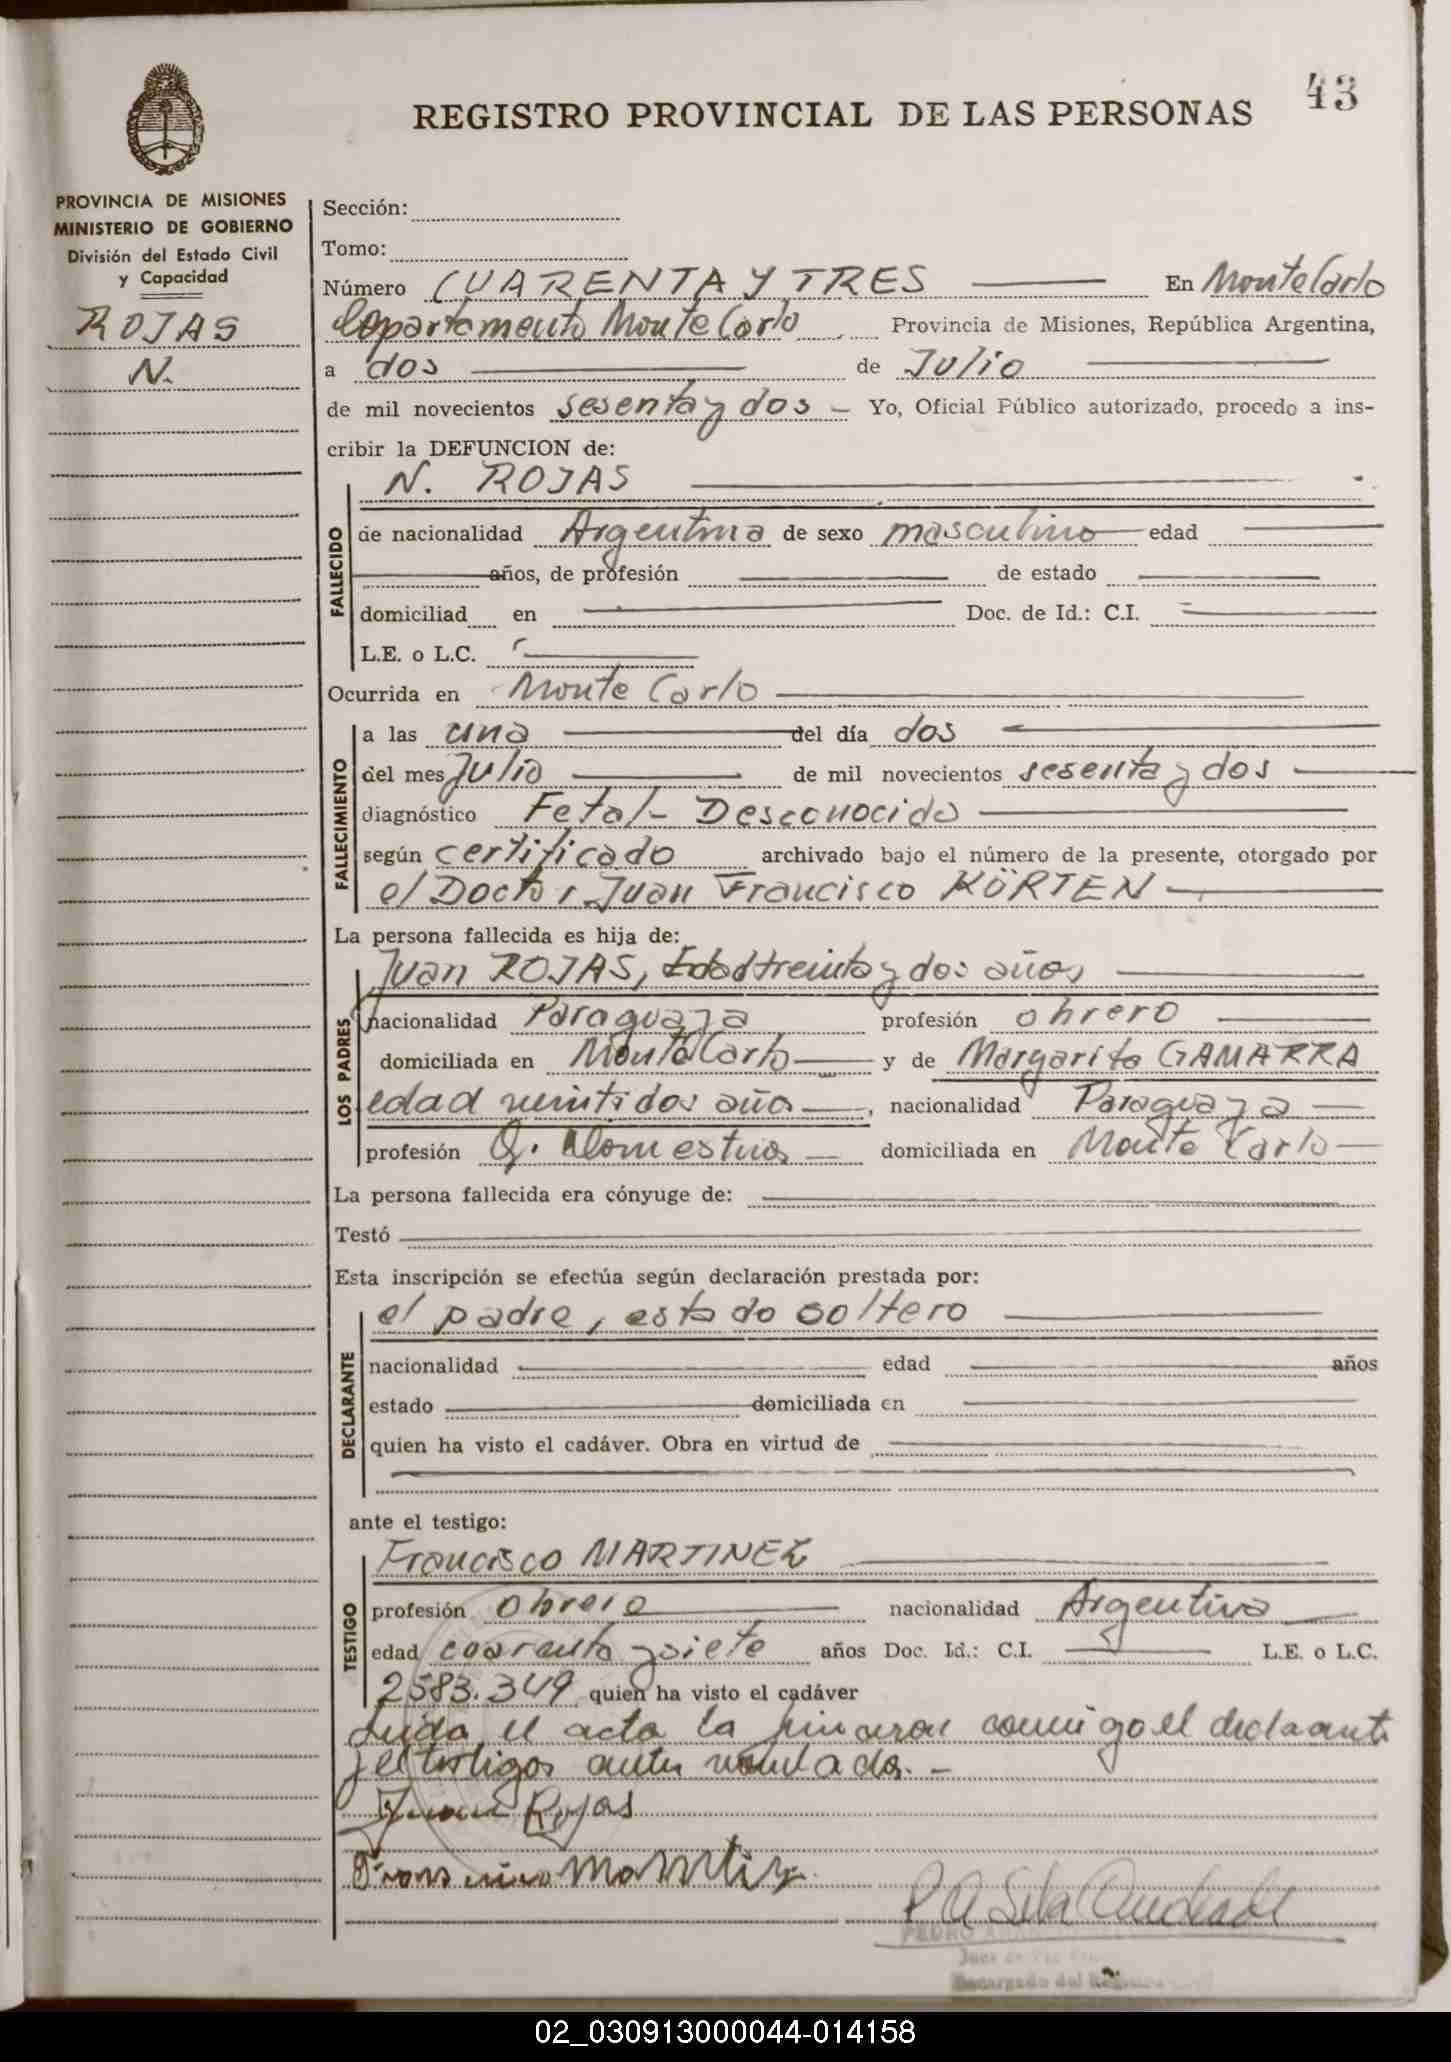 43
REGISTRO PROVINCIAL DE LAS PERSONAS
PROVINCIA DE MISIONES
MINISTERIO DE GOBIERNO
División del Estado Civil
y Capacidad
ROJAS
N.
Sección:
Tomo:
Número CUARENTA Y TRES En Monte Carlo
Departamento Monte Carlo Provincia de Misiones, República Argentina,
a dos de Julio
de mil novecientos sesenta y dos Yo, Oficial Público autorizado, procedo a ins-
cribir la DEFUNCION de:
N. ROJAS
FALLECIDO
de nacionalidad Argentina de sexo masculino edad
años, de profesión de estado
domiciliad en Doc. de Id.: C.I.
L.E. o L.C.
Ocurrida en Monte Carlo
FALLECIMIENTO
a las una del día dos
del mes Julio de mil novecientos sesenta y dos
diagnóstico Fetal - Desconocido
según certificado archivado bajo el número de la presente, otorgado por
el Doctor Juan Francisco KÖRTEN
La persona fallecida es hija de:
LOS PADRES
Juan ROJAS, Edad treinta y dos años
nacionalidad Paraguaya profesión obrero
domiciliada en Monte Carlo y de Margarita GAMARRA
edad veintidos años, nacionalidad Paraguaya
profesión Q. Domesticos domiciliada en Monte Carlo
La persona fallecida era cónyuge de:
Testó
Esta inscripción se efectúa según declaración prestada por:
DECLARANTE
el padre, estado soltero
nacionalidad edad años
estado domiciliada en
quien ha visto el cadáver. Obra en virtud de
ante el testigo:
TESTIGO
Francisco MARTINEZ
profesión obrero nacionalidad Argentina
edad cuarenta y siete años Doc. Id.: C.I. L.E. o L.C.
2583.349 quien ha visto el cadáver
Leida el acta la firman conmigo el declarante
y el testigo antes
Juan Rojas
PEDRO
Juez de Paz
Encargado del Registro
02_030913000044-014158